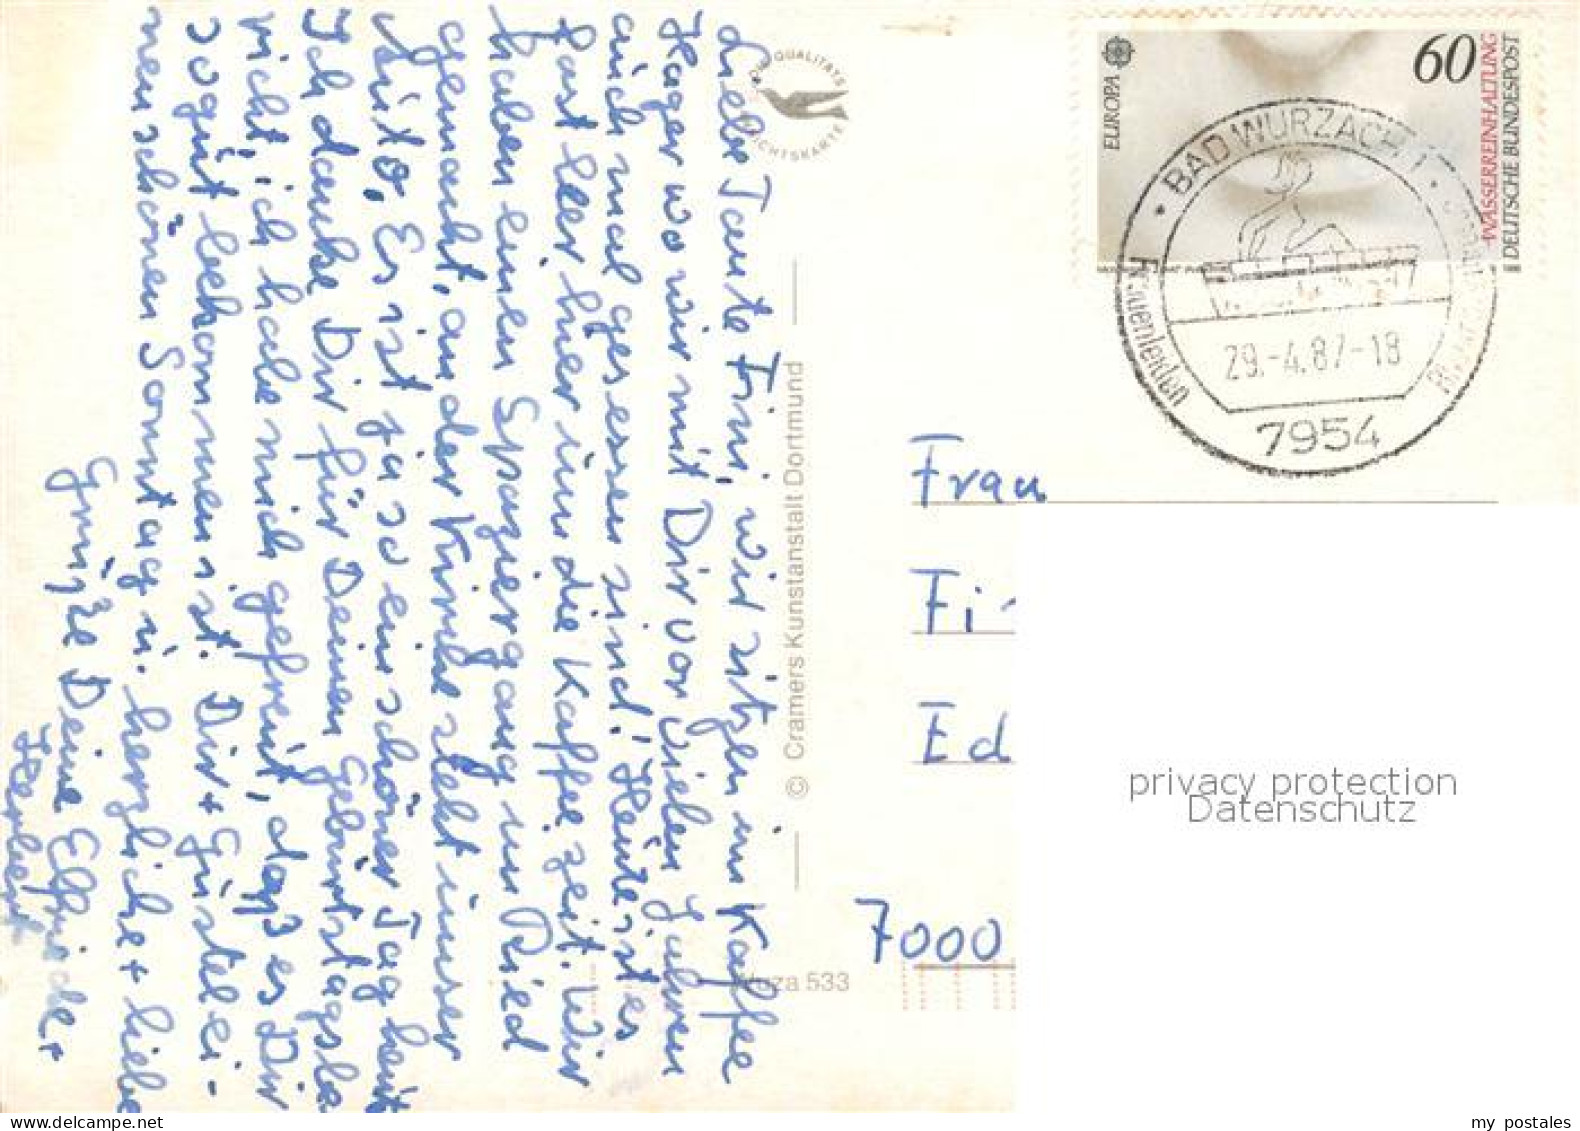 Liebe Tante Fini, wir sitzen im Kaffee
Hager wo wir mit Dir vor vielen Jahren
auch mal gesessen sind! Heute ist es
fast leer hier um die Kaffeezeit. Wir
haben einen Spaziergang im Ried
gemacht, an der Kirche steht immer
Auto, Es ist ja so ein schöner Tag heut
Ich danke Dir für Deinen Geburtstagsbr
nicht, ich habe mich gefreut, dass es Dir
so gut bekommen ist. Dir + Gustel ei-
nen schönen Sonntag u. herzliche + liebe
Grüße Deine Elfriede +
Herbert
QUALITÄTS
ANSICHTSKARTE
© Cramers Kunstanstalt Dortmund
Wuza 533
EUROPA
60
WASSERREINHALTUNG
DEUTSCHE BUNDESPOST
BAD WURZACH 1
29.-4.87-18
7954
Frau
Fi
Ed
7000
privacy protection
Datenschutz
my postales